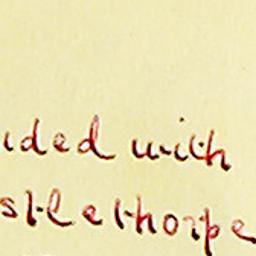 ided with
stlethorpe